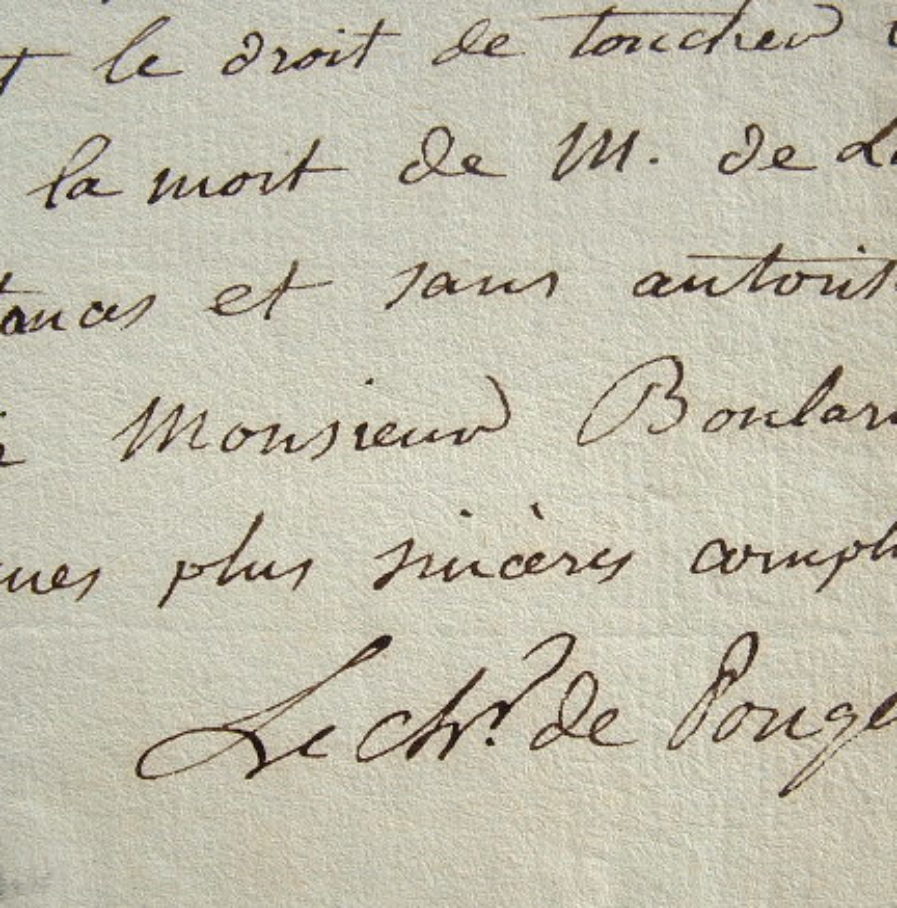 t le droit de toucher
la mort de M. de L
tances et sans autoris
Monsieur Boular
mes plus sincères compli
Le chr. de Pouge